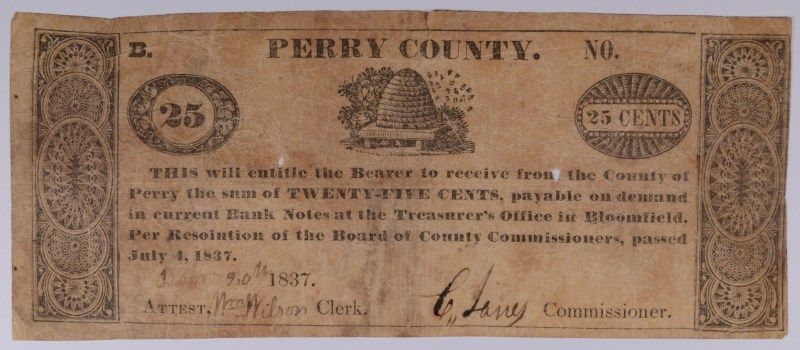 B. PERRY COUNTY. NO.
25
25 CENTS
THIS will entitle the Bearer to receive from the County of
Perry the sum of TWENTY-FIVE CENTS, payable on demand
in current Bank Notes at the Treasurer's Office in Bloomfield.
Per Resolution of the Board of County Commissioners, passed
July 4, 1837.
20th 1837.
ATTEST, Wm Wilson Clerk. C. Jones Commissioner.